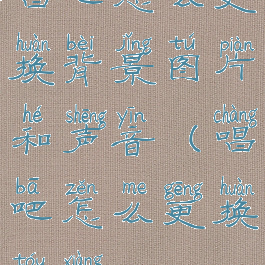 huàn bèi jǐng tú piàn
换背景图片
hé shēng yīn chàng
和声音（唱
bā zěn me gēng huàn
吧怎么更换
tóu xiàng